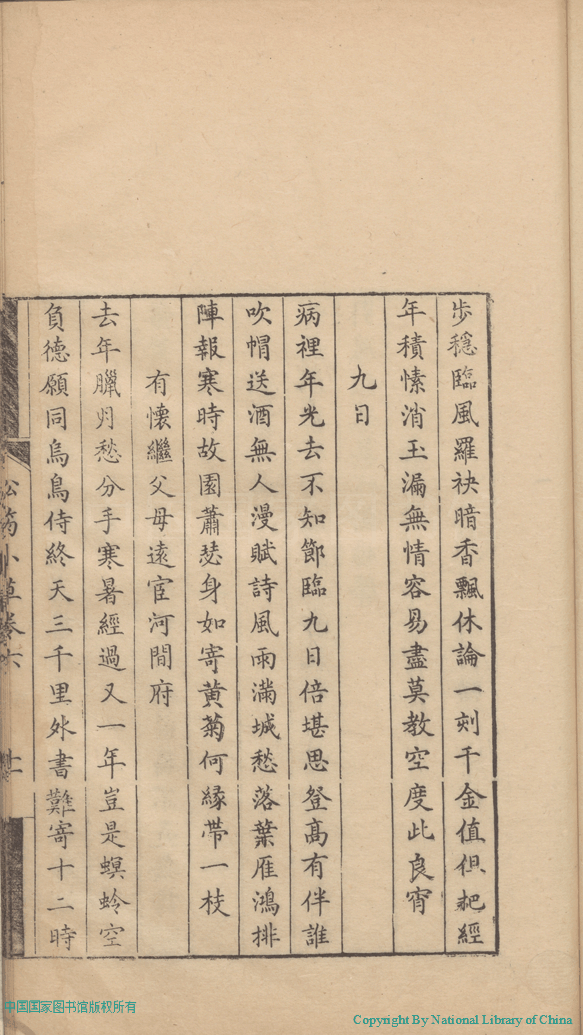 步穩臨風羅袂暗香飄休論一刻千金值但把經
年積愫消玉漏無情容易盡莫教空度此良宵
九日
病裡年光去不知節臨九日倍堪思登高有伴誰
吹帽送酒無人漫賦詩風雨滿城愁落葉雁鴻排
陣報寒時故園蕭瑟身如寄黃菊何緣帶一枝
有懷繼父母遠宦河間府
去年臘月愁分手寒暑經過又一年豈是螟蛉空
負德願同烏鳥侍終天三千里外書難寄十二時
松筠小草卷六
十一
中国国家图书馆版权所有
Copyright By National Library of China